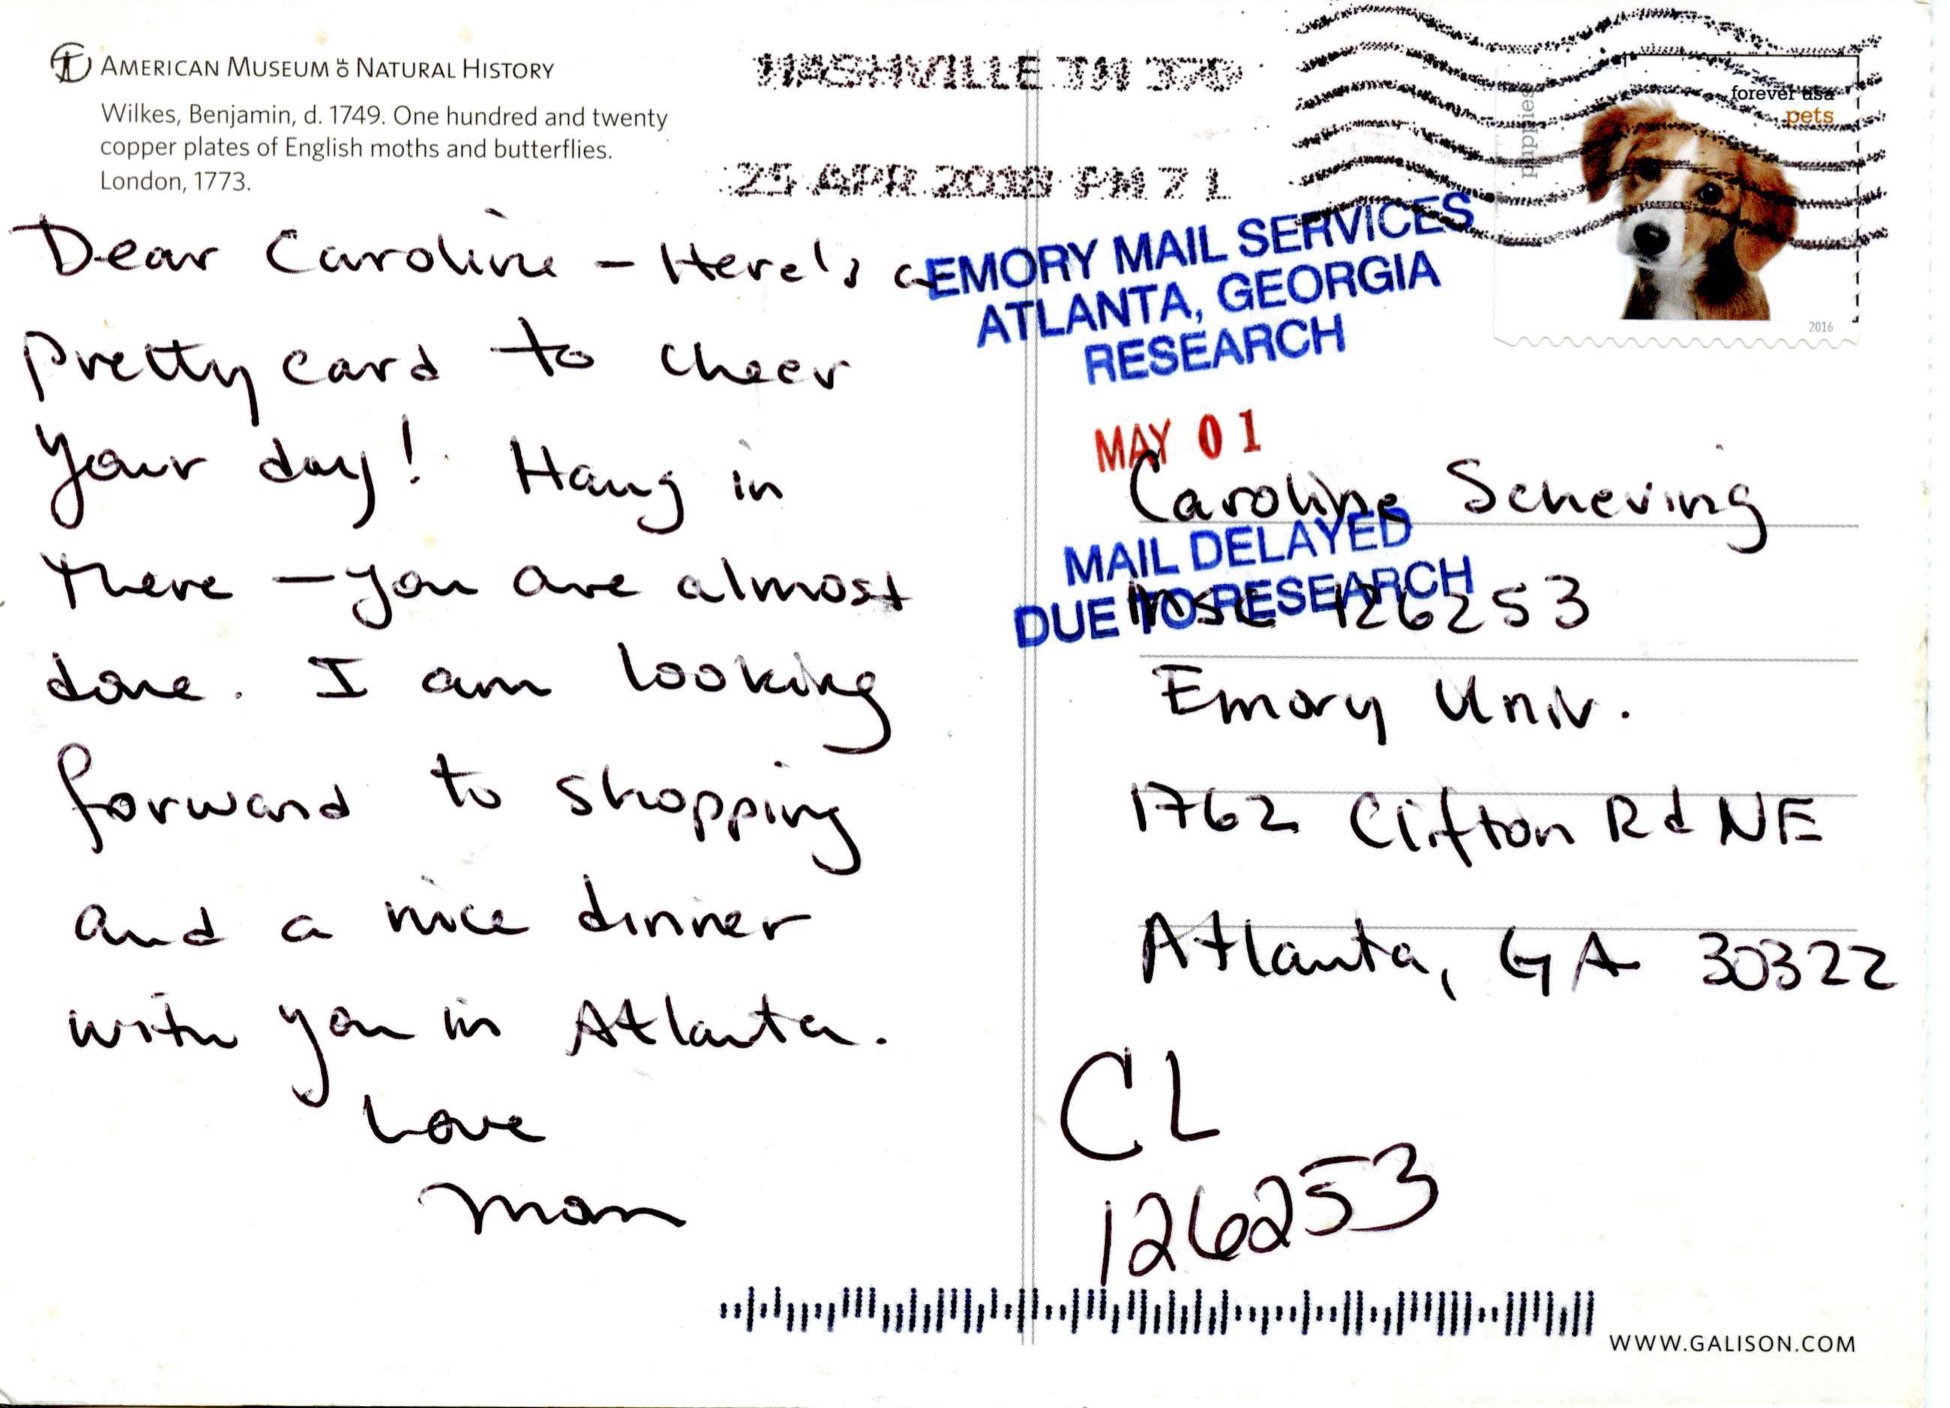 AMERICAN MUSEUM OF NATURAL HISTORY
Wilkes, Benjamin, d. 1749. One hundred and twenty
copper plates of English moths and butterflies.
London, 1773.
NASHVILLE TN 370
25 APR 2018 PM 7 L
forever usa
pets
puppies
2016
EMORY MAIL SERVICES
ATLANTA, GEORGIA
RESEARCH
MAY 01
MAIL DELAYED
DUE TO RESEARCH
Dear Caroline – Here's a
pretty card to cheer
your day! Hang in
there – you are almost
done. I am looking
forward to shopping
and a nice dinner
with you in Atlanta.
Love
Mom
Caroline Scheving
MSC 126253
Emory Univ.
1762 Clifton Rd NE
Atlanta, GA 30322
CL
126253
WWW.GALISON.COM